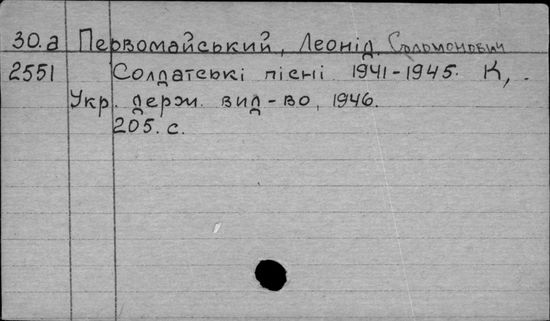 30.а Первомайський, Леонід Соломонович
2551 Солдатські пісні 1941-1945. К,
Укр. держ. вид-во, 1946.
205. с.